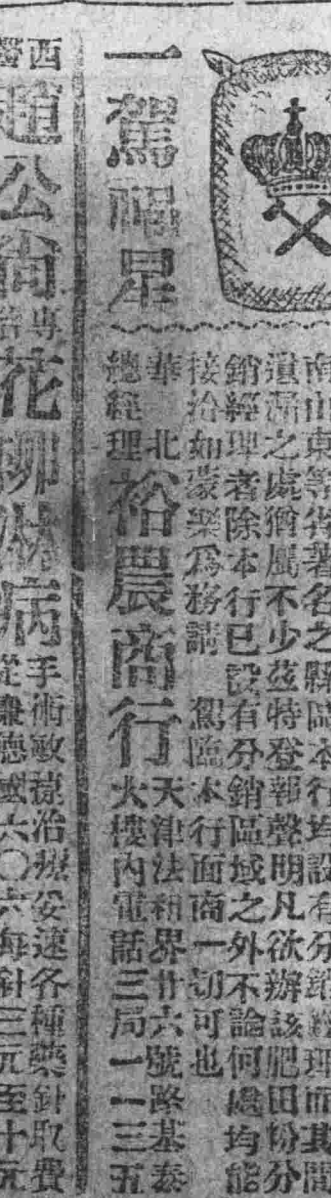 一駕福星
南山東等得著名之縣區本行均設有分銷經理而其間
遺漏之處猶屬不少茲特登報聲明凡欲辦該肥田粉分
銷經理者除本行已設有分銷區域之外不論何處均能
接洽如蒙樂爲務請 駕臨本行面商一切可也
華北
總經理
裕農商行
天津法租界廿六號路基泰
大樓內電話三局一一三五
西醫
趙公尙
專治
花柳淋病
手術敏捷治理妥速各種藥針取費
從廉德國六〇六每針三元至十元